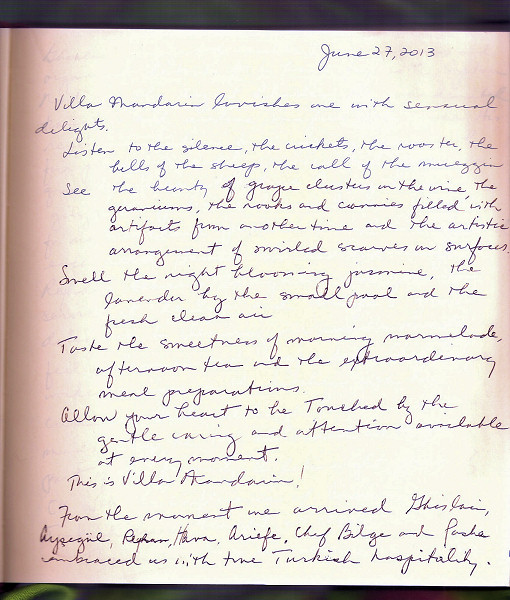 June 27, 2013
Villa Mandarin lavishes one with sensual
delights.
Listen to the silence, the crickets, the rooster, the
bells of the sheep, the call of the muezzin
See the beauty of grape clusters on the vine the
geraniums, the nooks and crannies filled with
artifacts from another time and the artistic
arrangement of swirled scarves on surfaces.
Smell the night blooming jasmine, the
lavender by the small pool and the
fresh clean air
Taste the sweetness of morning marmelade,
afternoon tea and the extraordinary
meal preparations.
Allow your heart to be Touched by the
gentle caring and attention available
at every moment.
This is Villa Mandarin!
From the moment we arrived Ghislain,
Ayşegül, Hava, Ariefe, Chef Bilge and Pasha
embraced us with true Turkish hospitality.